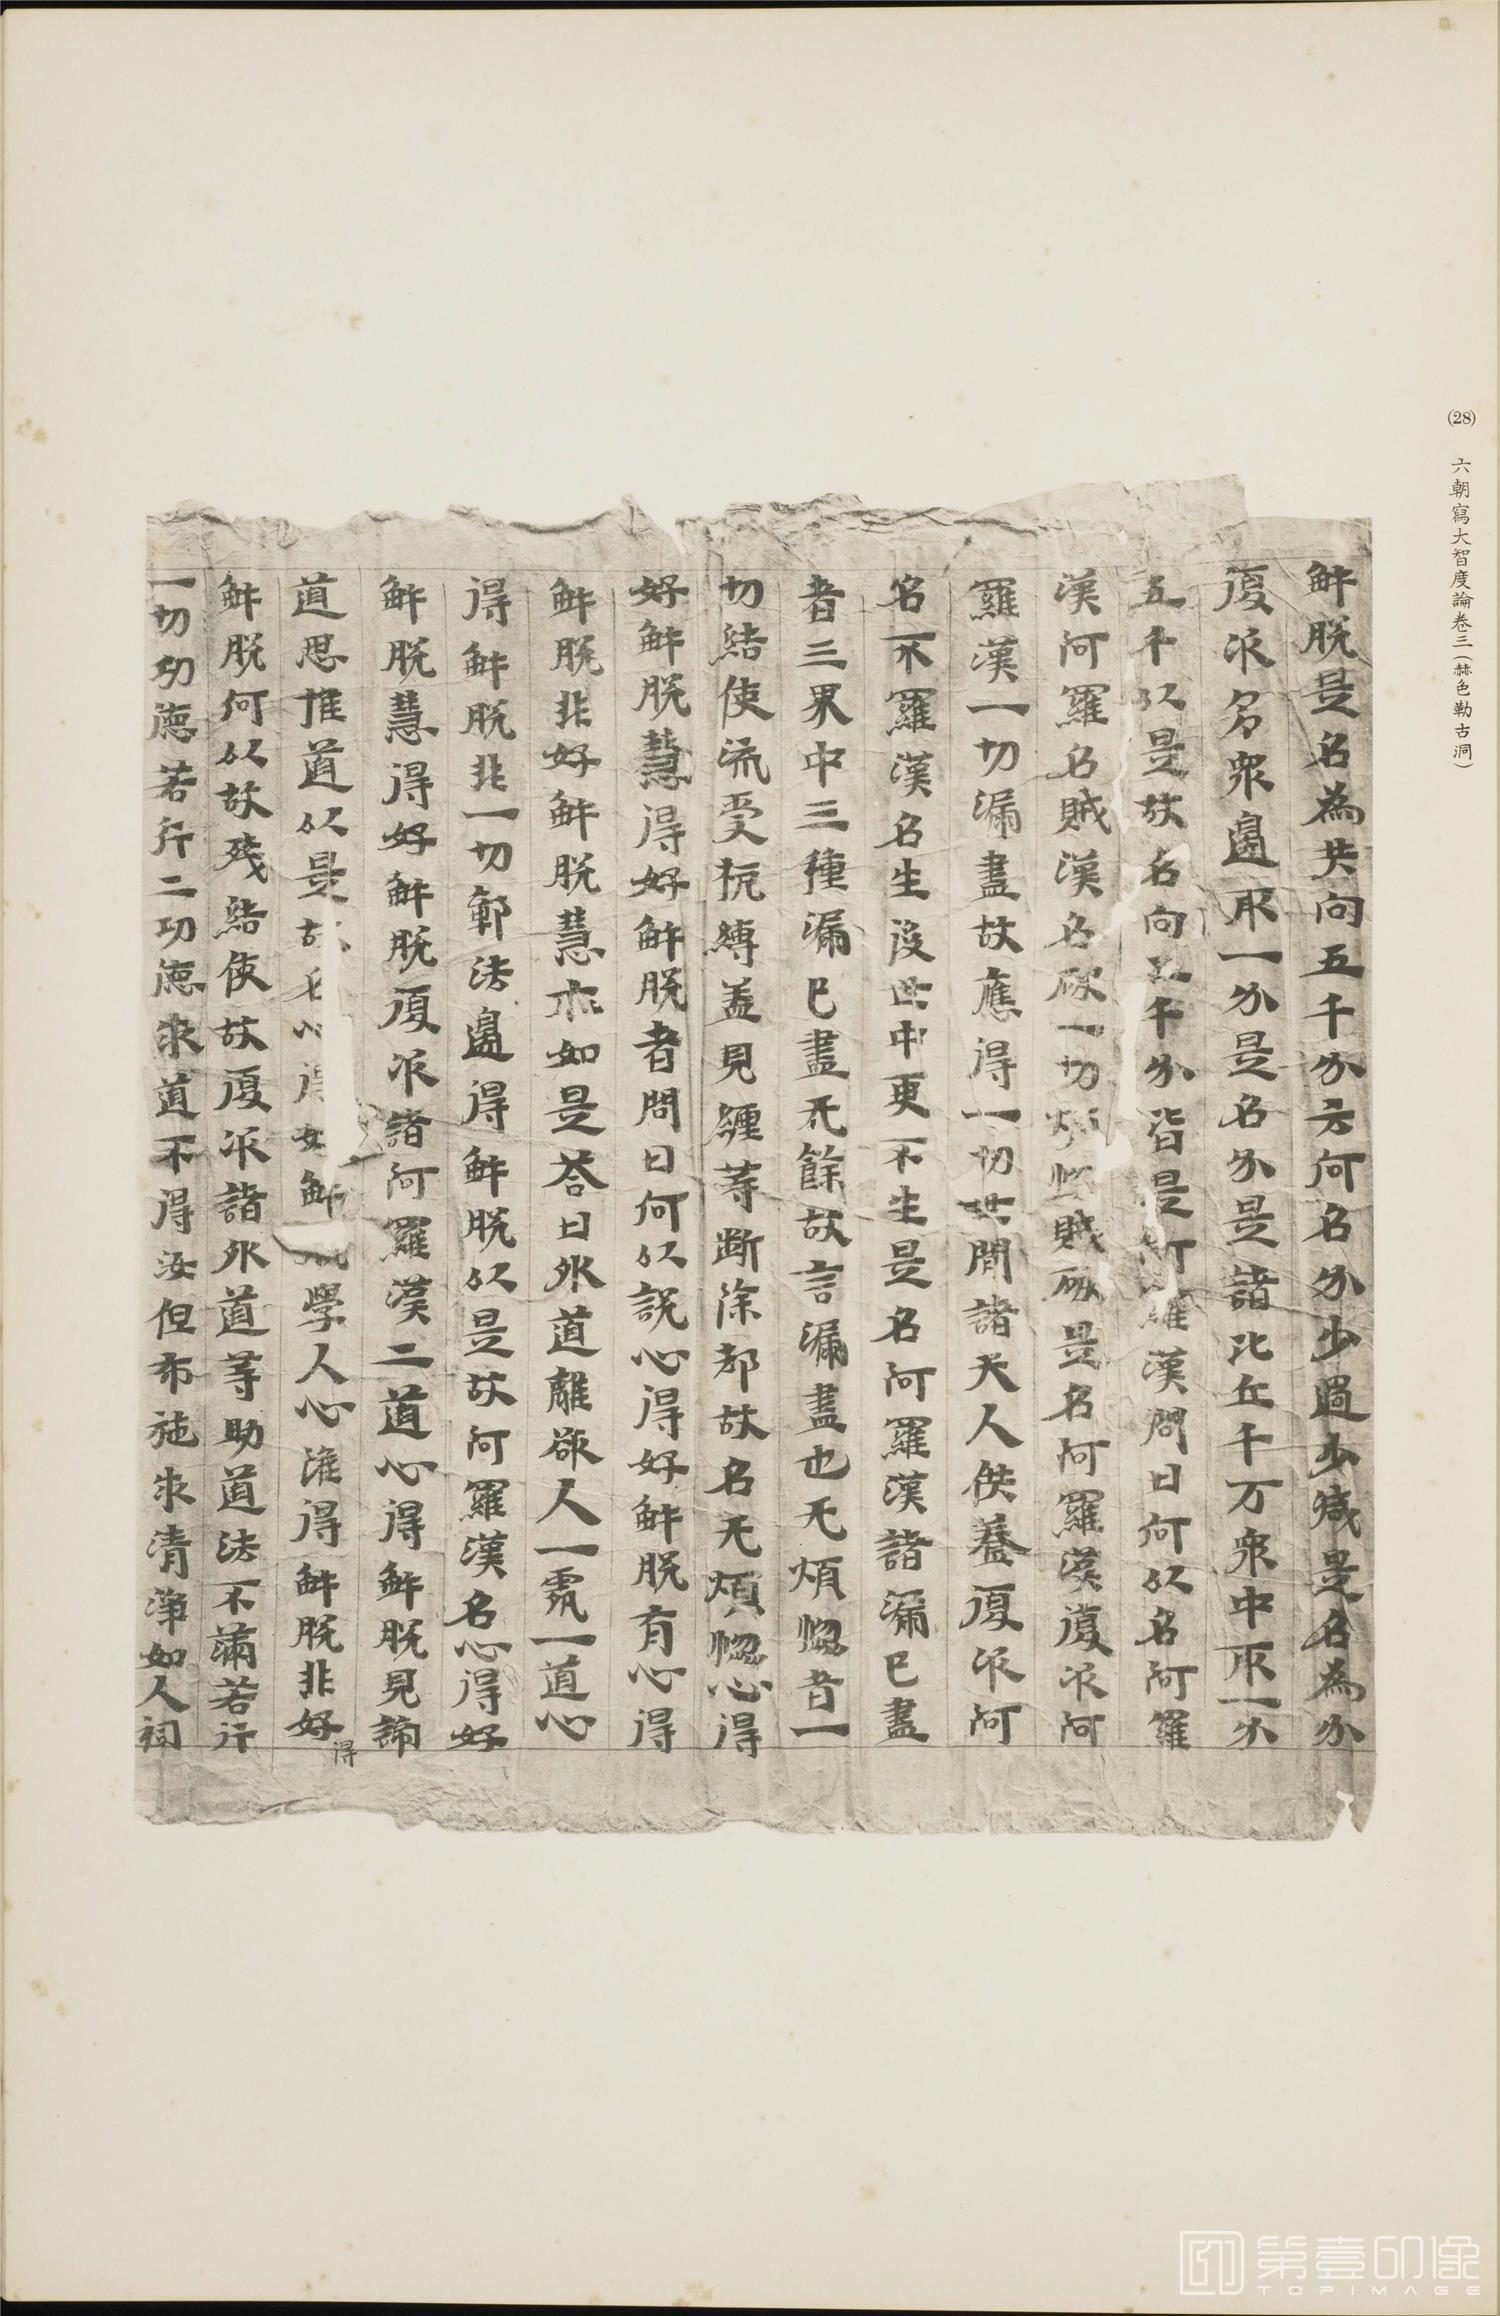 (28) 六朝寫大智度論卷三（赫色勒古洞）
解脱是名為共向五千分云何名分少過少減是名為分
復次多衆邊取一分是名分是諸比丘千万衆中取一分
五千以是故名向五千分皆是阿羅漢問曰何以名阿羅
漢阿羅名賊漢名破一切煩惱賊破是名阿羅漢復次阿
羅漢一切漏盡故應得一切世間諸天人供養復次阿
名不羅漢名生後世中更不生是名阿羅漢諸漏已盡
者三界中三種漏已盡无餘故言漏盡也无煩惚者一
切結使流受扼縛蓋見纏等断除都故名无煩惚心得
好解脱慧得好解脱者問曰何以説心得好解脱有心得
解脱非好解脱慧亦如是荅曰外道離欲人一處一道心
得解脱非一切鄣法邊得解脱以是故阿羅漢名心得好
解脱慧得好解脱復次諸阿羅漢二道心得解脱見諦
道思惟道以是故名心得好解脱學人心雖得解脱非好得
解脱何以故殘結使故復次諸外道等助道法不滿若行
一切功德若行二功德求道不得汝但布施求清淨如人祠
第壹印像
TOPIMAGE